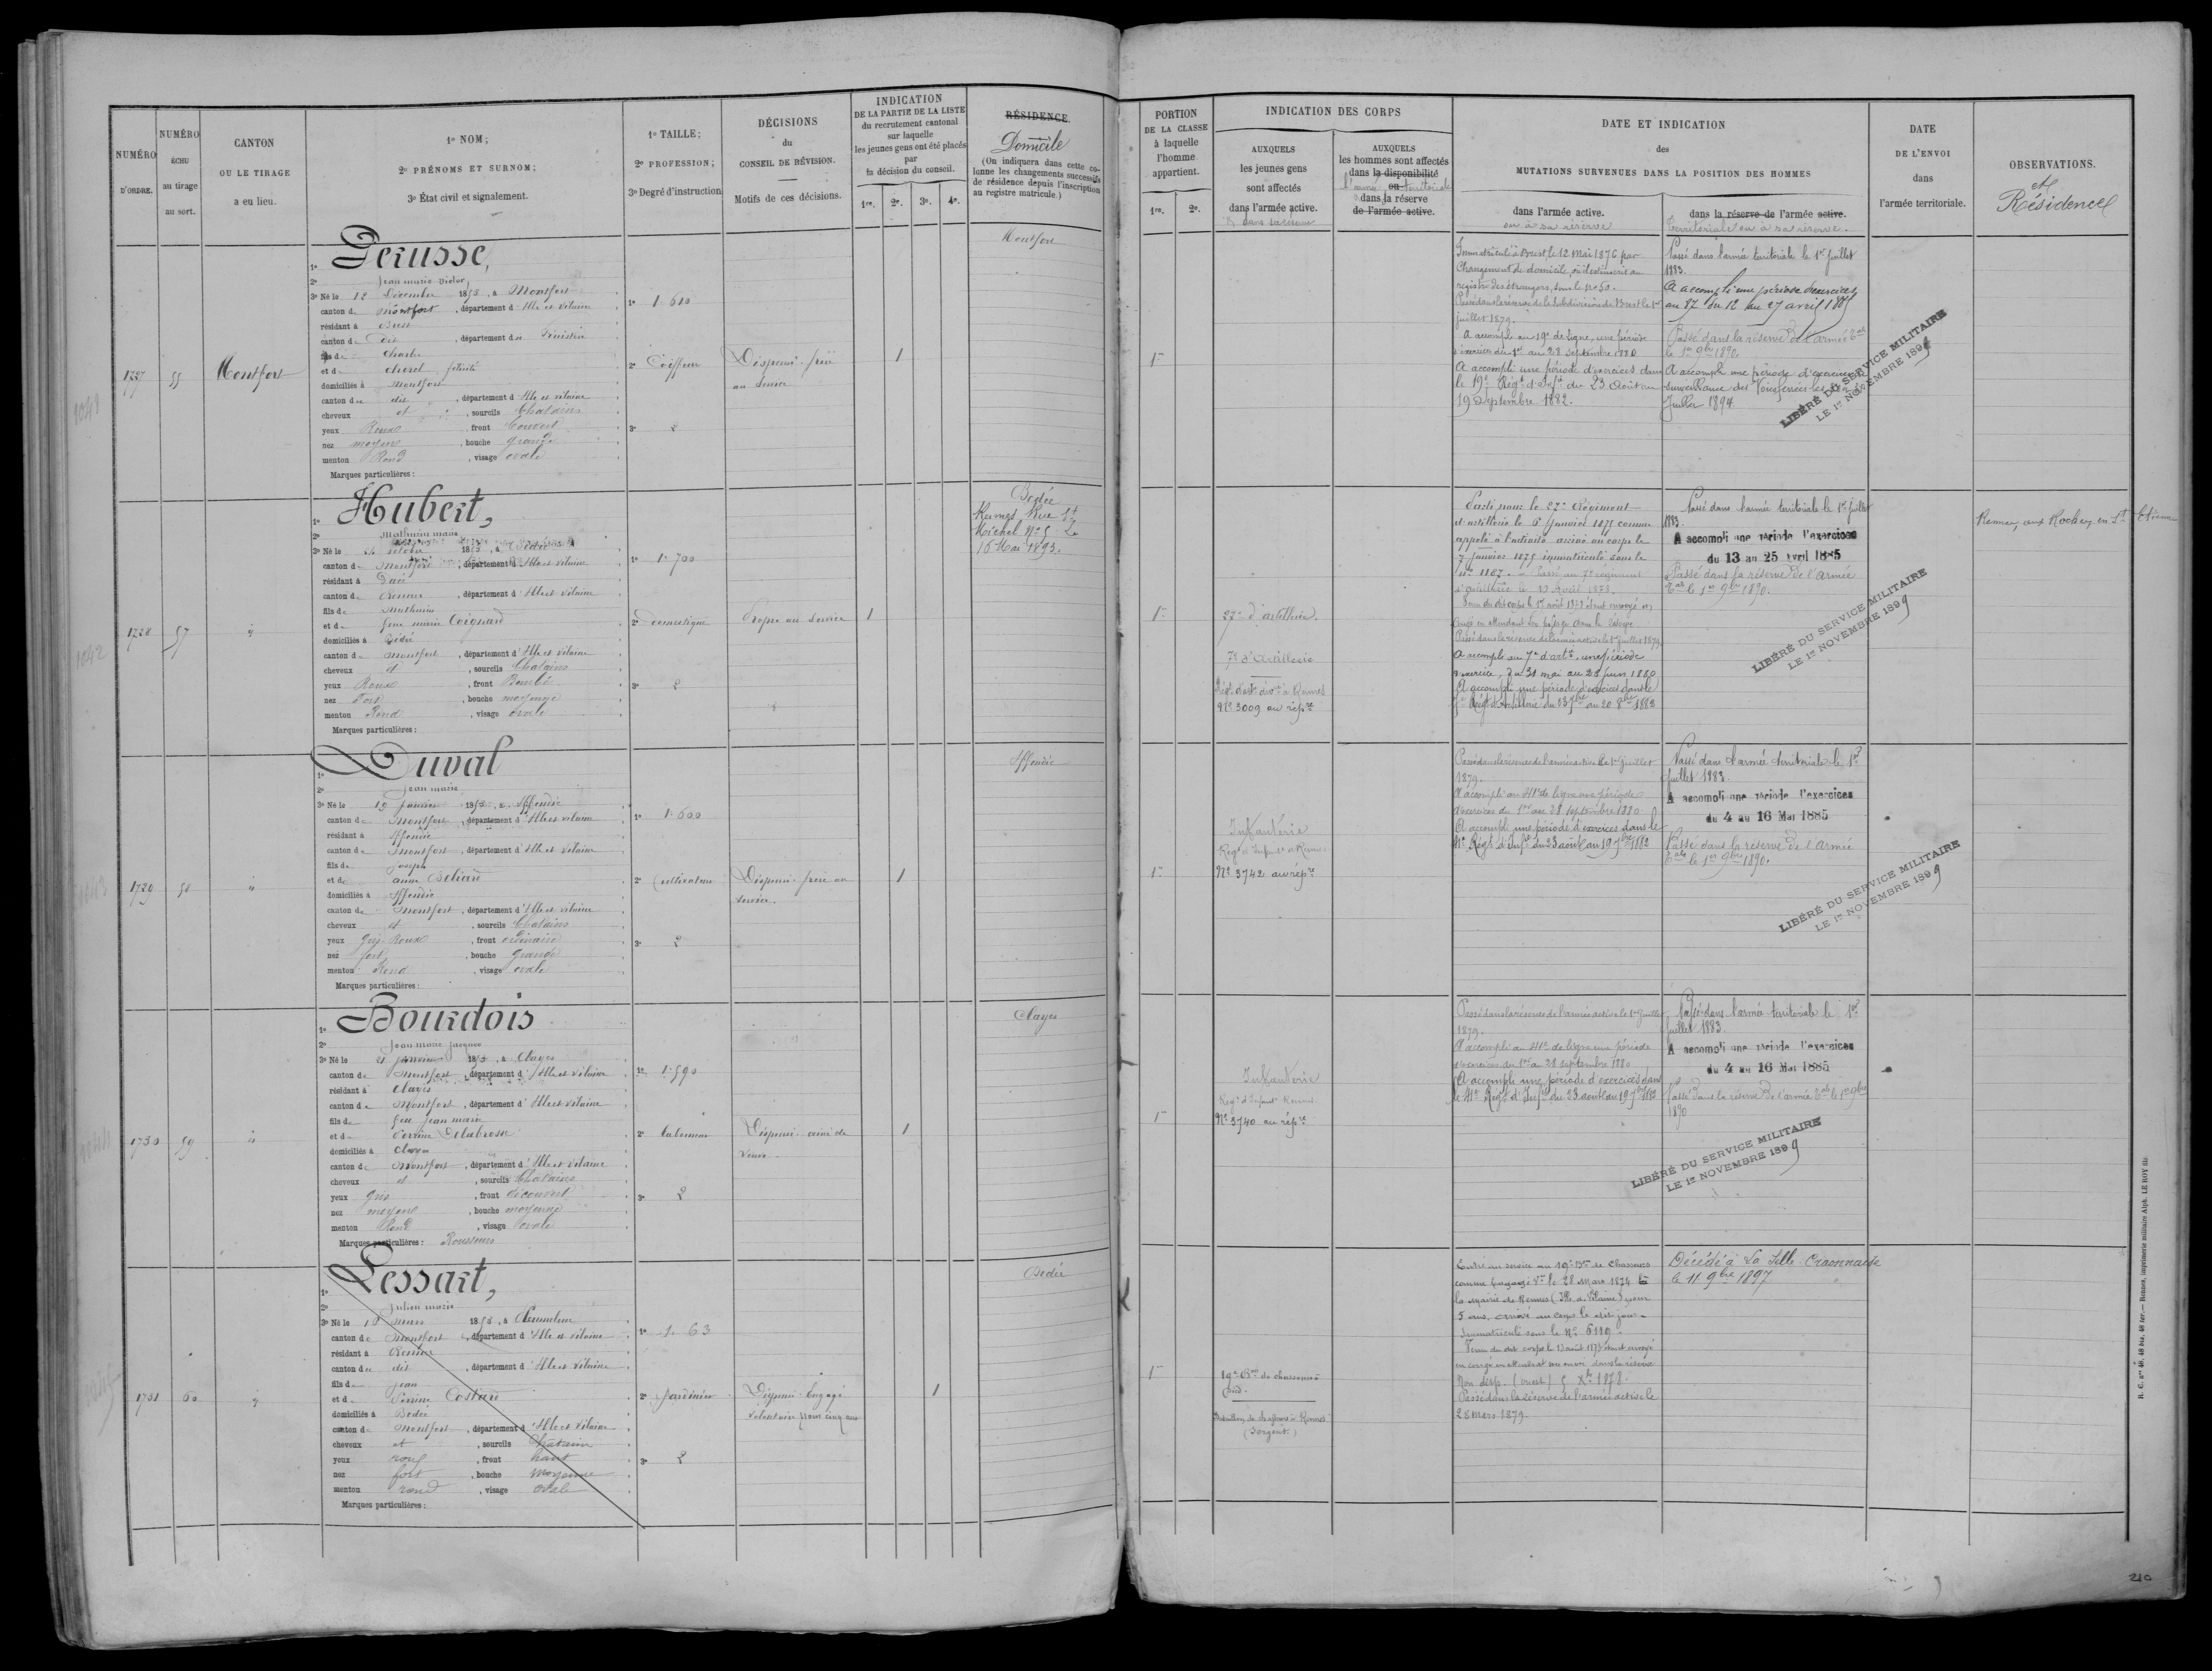 NUMÉRO
D'ORDRE.
NUMÉRO
ÉCHU
au tirage
au sort.
CANTON
OU LE TIRAGE
a eu lieu.
1º NOM;
2º PRÉNOMS ET SURNOM;
3º État civil et signalement.
1º TAILLE;
2º PROFESSION;
3º Degré d'instruction
DÉCISIONS
du
CONSEIL DE RÉVISION.
Motifs de ces décisions.
INDICATION
DE LA PARTIE DE LA LISTE
du recrutement cantonal
sur laquelle
les jeunes gens ont été placés
par
la décision du conseil.
1re. 2e. 3e. 4e.
RÉSIDENCE
Domicile
(On indiquera dans cette co-
lonne les changements successifs
de résidence depuis l'inscription
au registre matricule.)
PORTION
DE LA CLASSE
à laquelle
l'homme
appartient.
1re. 2e.
INDICATION DES CORPS
AUXQUELS
les jeunes gens
sont affectés
dans l'armée active.
AUXQUELS
les hommes sont affectés
dans la disponibilité
ou
dans la réserve
de l'armée active.
DATE ET INDICATION
des
MUTATIONS SURVENUES DANS LA POSITION DES HOMMES
dans l'armée active.
ou à sa réserve
dans la réserve de l'armée active.
Territoriale ou à sa réserve.
DATE
DE L'ENVOI
dans
l'armée territoriale.
OBSERVATIONS.
et
Résidence
1727
55
Montfort
1º Derusse,
2º Jean marie Victor
3º Né le 12 Décembre 1853, à Montfort
canton de Montfort, département d'Ille et Vilaine
résidant à Brest
canton de dit, département du Finistère
fils de Charles
et de Chorel félicité
domiciliés à Montfort
canton de dit, département d'Ille et Vilaine
cheveux et, sourcils Chatains
yeux Roux, front Couvert
nez moyen, bouche grande
menton Rond, visage ovale
Marques particulières:
1º 1.610
2º Coiffeur
3º 2
Dispensé frère
au service
1
Montfort
1re
Immatriculé à Brest, le 12 Mai 1876 par
Changement de domicile, où il est inscrit au
registre des étrangers, sous le nº 50.
Passé dans la réserve de la Subdivision de Brest le 1er
juillet 1879.
A accompli au 19e de ligne, une période
d'exercices du 1er au 28 Septembre 1880
A accompli une période d'exercices dans
le 19e Régt d'Inftie du 23 Août au
19 Septembre 1882.
Passé dans l'armée territoriale le 1er Juillet
1883.
A accompli une période d'exercices
au 87e du 12 au 27 avril 1885
Passé dans la réserve de l'armée Tale
le 1er 9bre 1890
A accompli une période d'exercices
surveillance des Voies ferrées
Juillet 1894
LIBÉRÉ DU SERVICE MILITAIRE
LE 1er NOVEMBRE 1899
1728
57
1º Hubert,
2º Mathurin marie
3º Né le octobre 1853, à Bédée
canton de Montfort, département d'Ille et Vilaine
résidant à
canton de Rennes, département d'Ille et Vilaine
fils de Mathurin
et de Jeanne marie Coignard
domiciliés à Bédée
canton de Montfort, département d'Ille et Vilaine
cheveux et, sourcils Chatains
yeux Roux, front Bombé
nez Fort, bouche moyenne
menton Rond, visage ovale
Marques particulières:
1º 1.700
2º domestique
3º 2
Propre au service
1
Bedée
Rennes Rue St
Michel Nº 5 Le
16 Mai 1893.
1re
27e d'artillerie.
7e d'Artillerie
Régt d'art. divre à Rennes
Nº 3009 au répre
Parti pour le 27e Régiment
d'artillerie le 6 Janvier 1875 comme
appelé à l'activité arrivé au corps le
7 Janvier 1875 immatriculé sous le
nº 1187. Passé au 7e régiment
Passé dans la réserve de l'armée active le 1er juillet 1879
A accompli au 7e d'artie, une période
d'exercice, du 31 mai au 28 juin 1880
A accompli une période d'exercices dans le
7e Régt d'Artillerie du 23 7bre au 20 8bre 1882
Passé dans l'armée territoriale le 1er Juillet
1883.
A accompli une période d'exercices
du 13 au 25 Avril 1885
Passé dans la réserve de l'armée
Tale le 1er 9bre 1890.
LIBÉRÉ DU SERVICE MILITAIRE
LE 1er NOVEMBRE 1899
Rennes, aux Rochers en St Etienne
1729
58
1º Duval
2º Jean marie
3º Né le 19 Janvier 1853, à Iffendic
canton de Montfort, département d'Ille et Vilaine
résidant à Iffendic
canton de Montfort, département d'Ille et Vilaine
fils de joseph
et de anne Beliard
domiciliés à Iffendic
canton de Montfort, département d'Ille et Vilaine
cheveux et, sourcils Chatains
yeux Gris Roux, front ordinaire
nez fort, bouche grande
menton Rond, visage ovale
Marques particulières:
1º 1.600
2º Cultivateur
3º 2
Dispensé frère au
service.
1
Iffendic
1re
Infanterie
Régt d'Infantie à Rennes
Nº 3742 au répre
Passé dans la réserve de l'armée active le 1er Juillet
1879.
A accompli au 41e de ligne une période
d'exercices du 1er au 28 septembre 1880
A accompli une période d'exercices dans le
41e Régt d'Inftie du 23 août au 19 7bre 1882
Passé dans l'armée territoriale le 1er
Juillet 1883.
A accompli une période d'exercices
du 4 au 16 Mai 1885
Passé dans la réserve de l'armée
Tale le 1er 9bre 1890.
LIBÉRÉ DU SERVICE MILITAIRE
LE 1er NOVEMBRE 1899
1730
59
1º Bourdois
2º Jean marie Jacques
3º Né le 21 janvier 1853, à Clayes
canton de Montfort, département d'Ille et Vilaine
résidant à Clayes
canton de Montfort, département d'Ille et Vilaine
fils de feu Jean marie
et de Perrine Delabrosse
domiciliés à Clayes
canton de Montfort, département d'Ille et Vilaine
cheveux et, sourcils Chatains
yeux Gris, front découvert
nez moyen, bouche moyenne
menton Rond, visage ovale
Marques particulières: Rousseurs
1º 1.590
2º Laboureur
3º 2
Dispensé ainé de
veuve
1
Clayes
1re
Infanterie
Régt d'Infantie Rennes
Nº 3740 au répre
Passé dans la réserve de l'armée active le 1er Juillet
1879.
A accompli au 41e de ligne une période
d'exercices du 1er au 28 septembre 1880
A accompli une période d'exercices dans
le 41e Régt d'Inftie du 23 août au 19 7bre 1882
Passé dans l'armée territoriale le 1er
juillet 1883.
A accompli une période d'exercices
du 4 au 16 Mai 1885
Passé dans la réserve de l'armée Tale le 1er 9bre
1890
LIBÉRÉ DU SERVICE MILITAIRE
LE 1er NOVEMBRE 1899
1731
60
1º Lessart,
2º Julien marie
3º Né le mars 1853, à Pleumeleuc
canton de Montfort, département d'Ille et Vilaine
résidant à Rennes
canton de dit, département d'Ille et Vilaine
fils de jean
et de Perrine Costard
domiciliés à Bedée
canton de Montfort, département d'Ille et Vilaine
cheveux et, sourcils Chatains
yeux roux, front haut
nez fort, bouche moyenne
menton rond, visage ovale
Marques particulières:
1º 1.63
2º Jardinier
3º 2
Dispensé Engagé
volontaire pour cinq ans
1
Bedée
1re
19e Bon de chasseurs à
pied.
Bataillon de chasseurs à Rennes
(Sergent.)
Entré au service au 19e Bon de Chasseurs
comme Engagé Vre le 28 Mars 1874 à
la Mairie de Rennes (Ille et Vilaine) pour
5 ans, arrivé au corps le dit jour
Immatriculé sous le Nº 6119
en congé en attendant son envoi dans la réserve
Non disp. (ouest) 5 Xbre 1878.
Passé dans la réserve de l'armée active le
28 Mars 1879.
Décédé à La Selle-Craonnaise
le 11 9bre 1897
R. C. nos 48, 48 bis, 48 ter.— Rennes, imprimerie militaire Alph. LE ROY fils
210